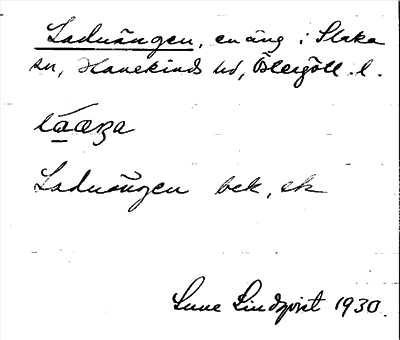 Laduängen, en äng i Slaka
sn, Hanekinds hd, Östergötl. l.
Laduängen bek, sk
Sune Lindqvist 1930.